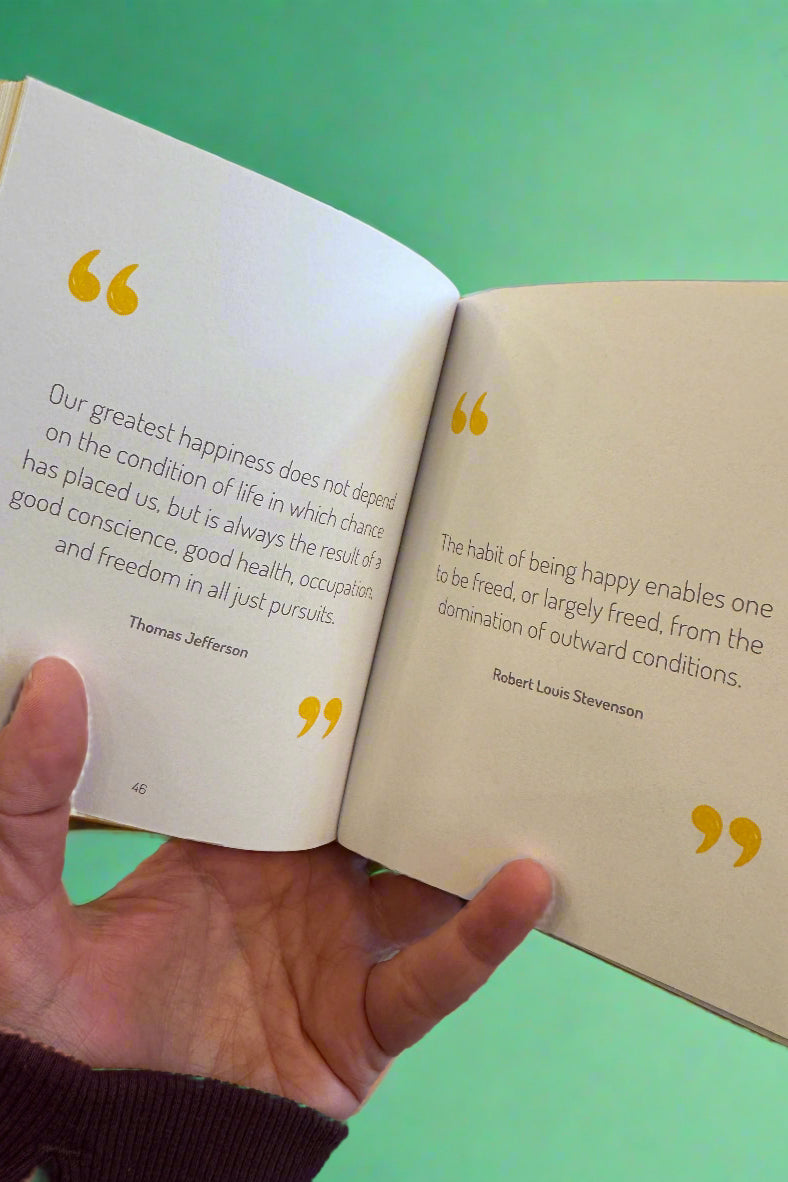 “
Our greatest happiness does not depend
on the condition of life in which chance
has placed us, but is always the result of a
good conscience, good health, occupation,
and freedom in all just pursuits.
Thomas Jefferson
”
46
“
The habit of being happy enables one
to be freed, or largely freed, from the
domination of outward conditions.
Robert Louis Stevenson
”